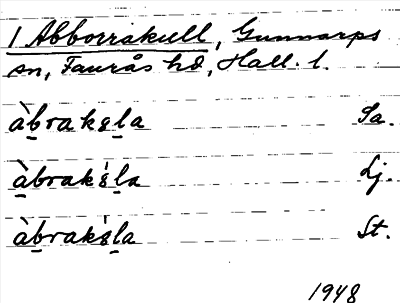 1 Abborrakull, Gunnarps
sn, Faurås hd, Hall. l.
àbraksla Sa.
àbraksla Lj.
àbraksla St.
1948